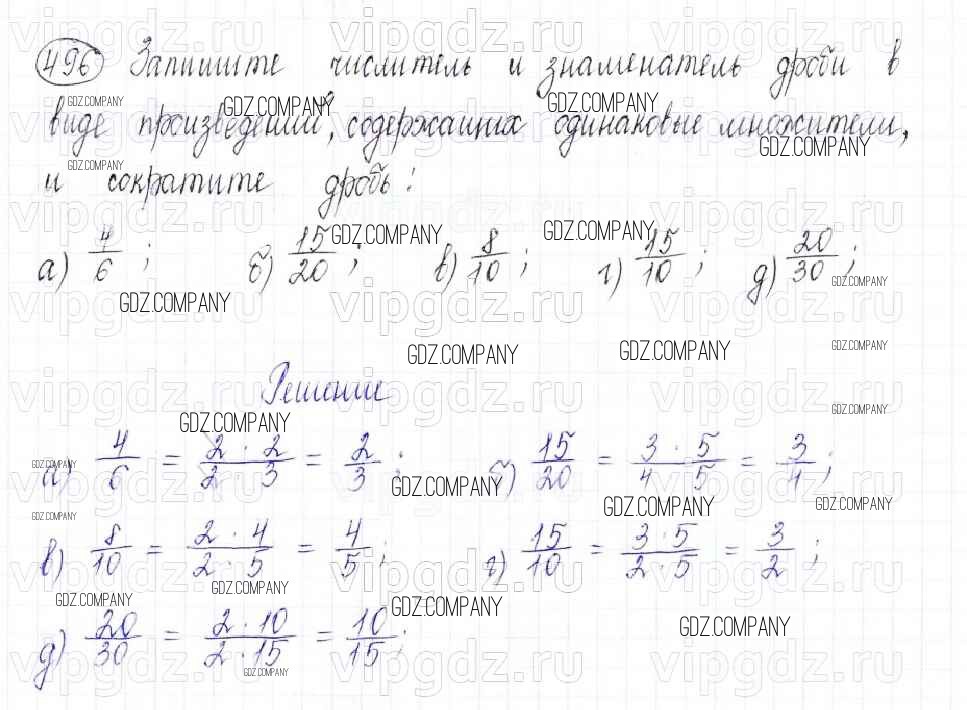 496 Запишите числитель и знаменатель дроби в
виде произведений, содержащих одинаковые множители,
и сократите дробь:
а) 4/6 ; б) 15/20 ; в) 8/10 ; г) 15/10 ; д) 20/30 ;
Решение
а) 4/6 = 2·2/2·3 = 2/3 ; б) 15/20 = 3·5/4·5 = 3/4 ;
в) 8/10 = 2·4/2·5 = 4/5 ; г) 15/10 = 3·5/2·5 = 3/2 ;
д) 20/30 = 2·10/2·15 = 10/15 ;
vipgdz.ru
GDZ.COMPANY